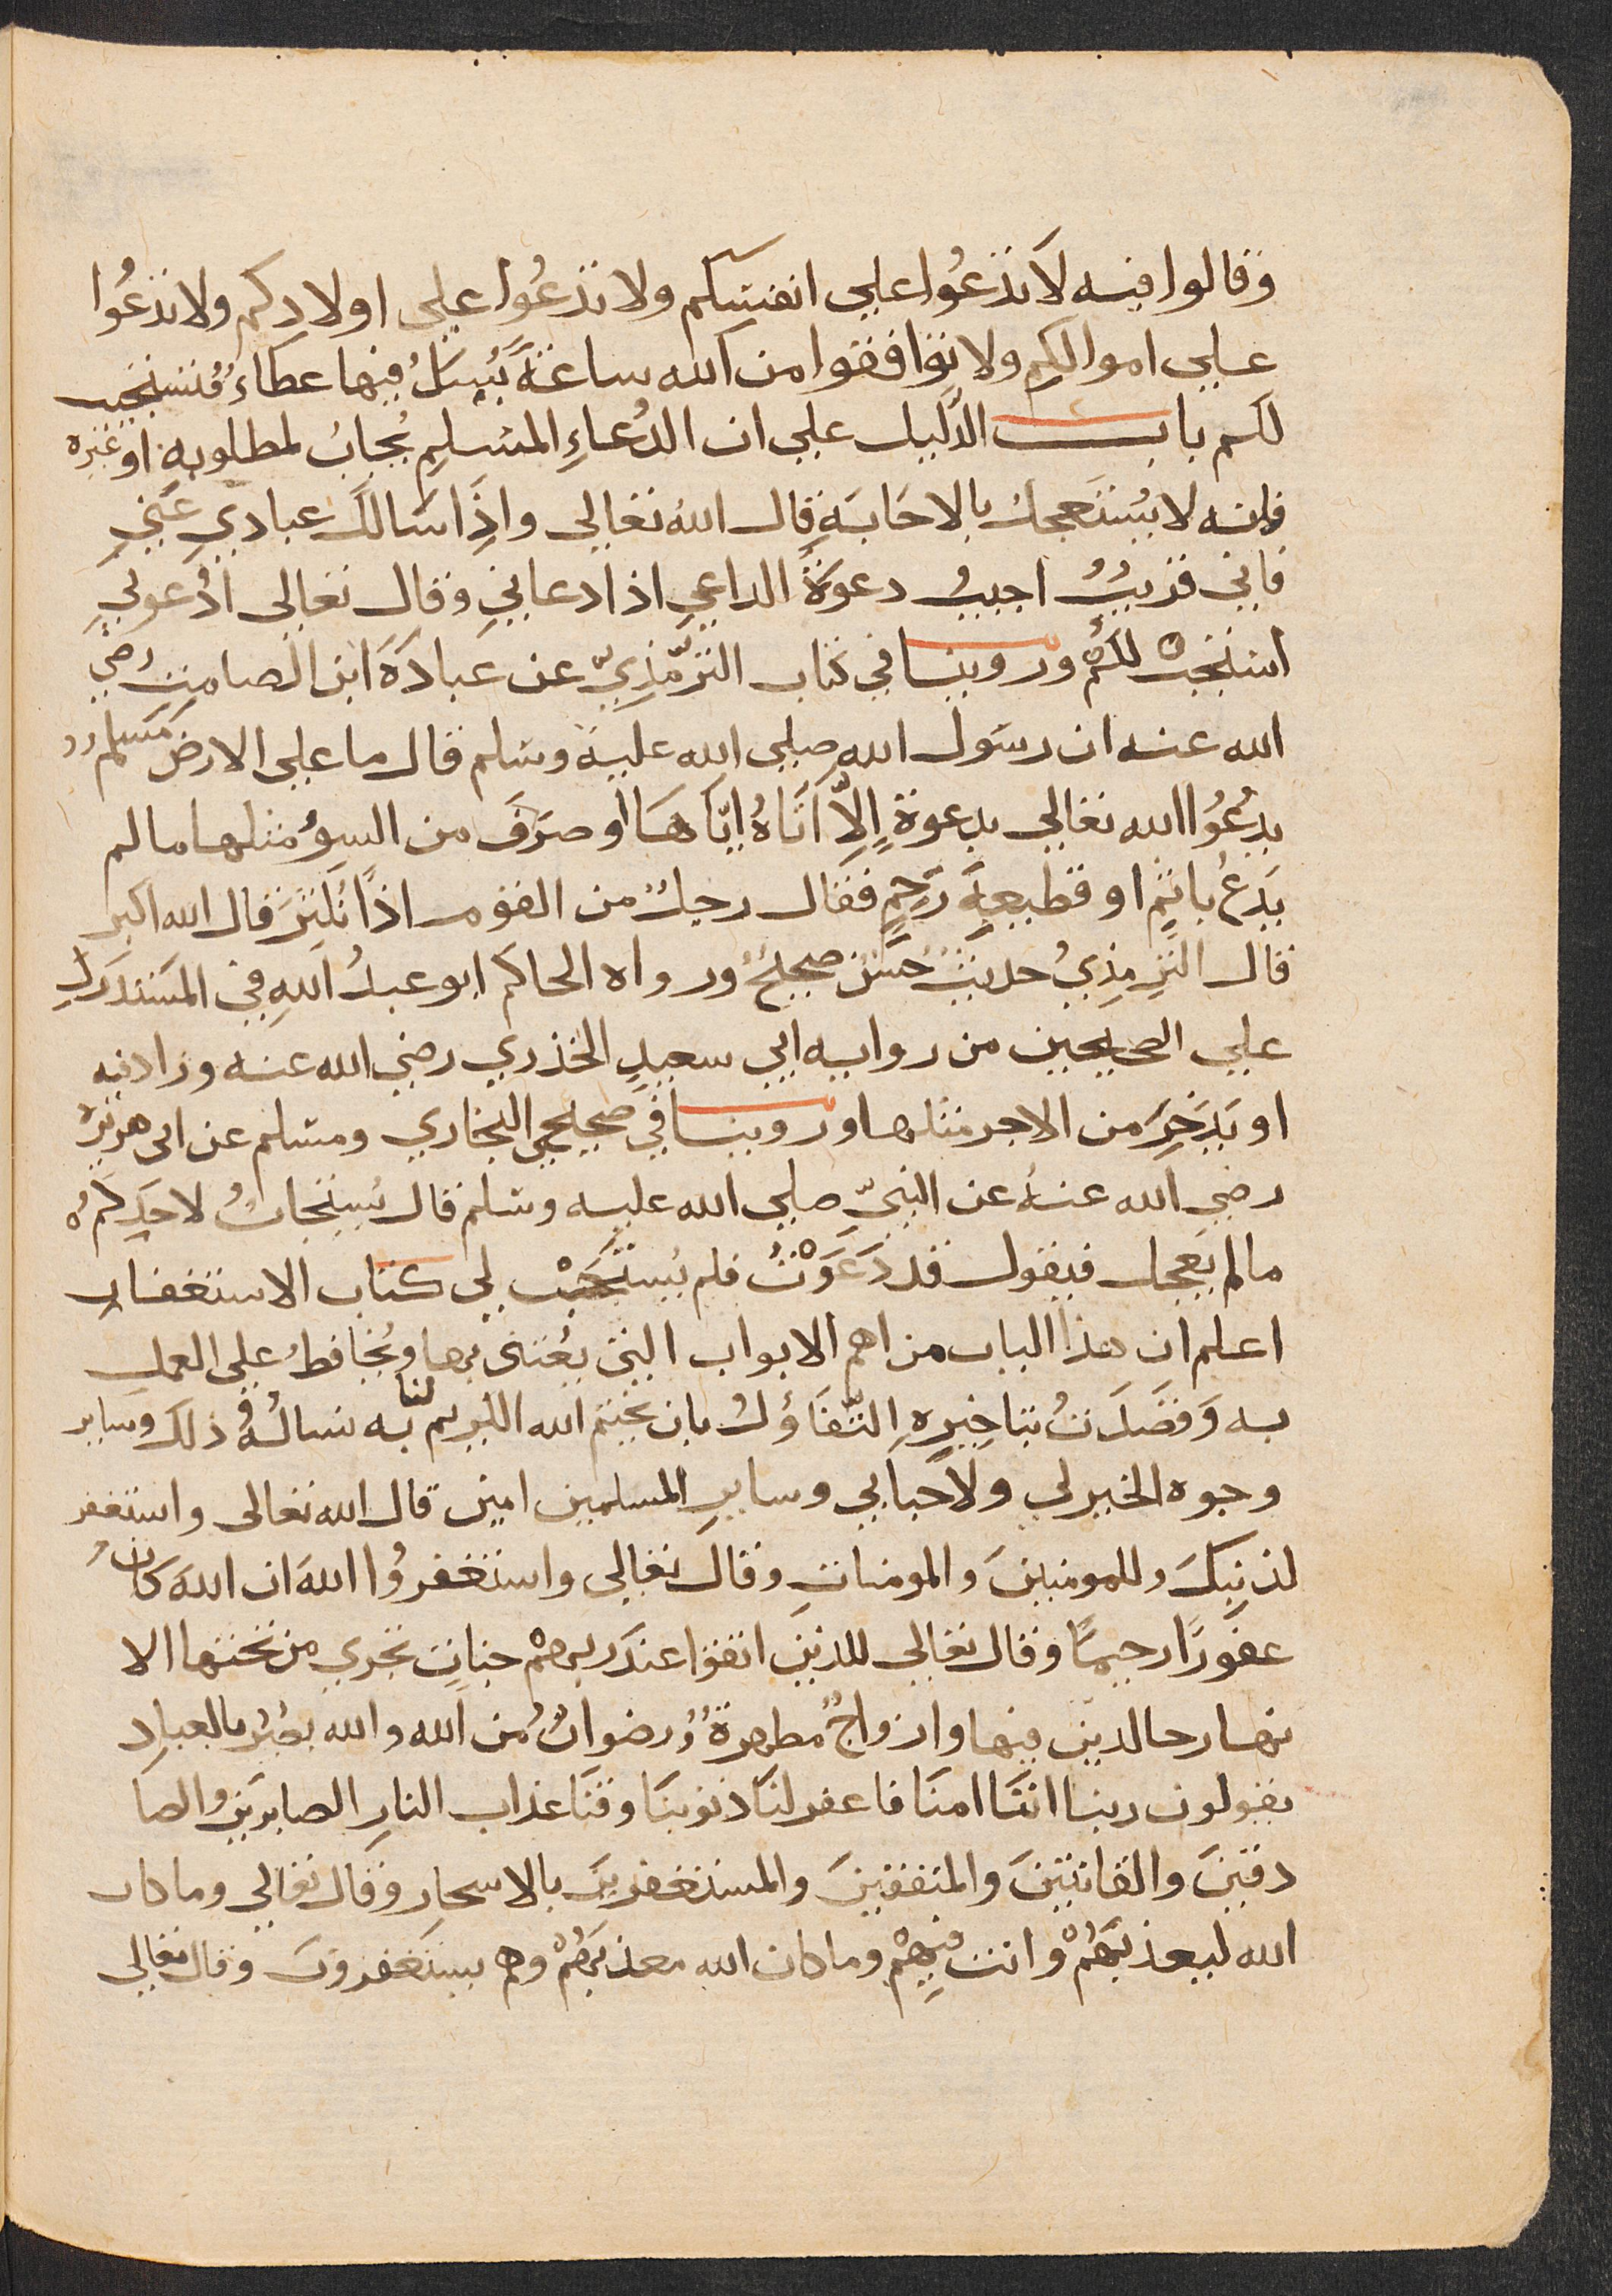 وقالوا فيه لا تدعُوا علي انفسكم ولا تدعُوا علي اولادكم ولا تدعُوا
علي اموالكم ولا توافقوا من الله ساعةً يُسئلُ فيها عطاء فيستجيب
لكم باب الدَّليل علي ان الدُعاءِ المسلمِ يُجابُ لمطلوبهِ او غيره
فانه لا يُستَعجل بالاجابَةِ قال الله تعالي واذَا سَالَكَ عبادي عَنّي
فاني قريبٌ اجيبُ دعوَةَ الداعي اذا دعانِي وقال تعالي ادُعوني
استجبْ لكُمْ وروينا في كتاب الترّمَذِيّ عن عبادَةَ ابن الصامِتِ رضي
الله عنه ان رسَول الله صلي الله عليه وسَلم قال ما علي الارض مُسَلم
يدعُوُا الله تعالي بدعوةٍ اِلاّ اَتَاهُ ايّاهَا او صَرَفَ من السؤ مثلها ما لم
يَدعُ باثمٍ او قطيعةِ رَحِمٍ فقال رجلٌ من القوم اذًا نُكثِرَ قال الله اكبر
قال الترمِذِيُ حديثٌ حَسَنٌ صحيحٌ ورواه الحاكم ابو عبدُ اللهِ في المَستدرَكِ
علي الصحيحين من روايه ابي سعيدِ الخذري رضي الله عنه وزاد فيه
او يَدخِرَ من الاجر مثلها وروينا في صحيحي البخاري ومسَلم عن ابي هريرة
رضي الله عنهُ عن النبيّ صلي الله عليه وسَلم قال يُستجابُ لاحَدِكمُ
ما لم يَعجل فيقول قد دَعَوْتُ فلم يُستَجَبْ لي كتاب الاستغفار
اعلم ان هذا الباب من اهم الابواب التي يُعتنى بها ويُحافظُ علي العمل
به وَقصَدتُ بتاخيرِهِ التّفَاؤلُ بان يختم الله الكريم لنا به نسالُهُ ذلك وساير
وجوه الخير لي ولاحبابي وسايرِ المسلمين امين قال الله تعالي واستغفر
لذنبِكَ وللمومنينَ والمومناتِ وقال تعالي واستغفرُوا اللهَ ان اللهَ كان
غفورًا رحيمًا وقال تعالي للذينَ اتقوا عندَ ربهمْ جناتٍ تجري من تحتها الا
نهار خالدين فيها وازواجٌ مطهرةٌ ورضوانٌ من الله والله بصيرٌ بالعبادِ
يقولون ربنا انّنَا امنَا فاغفر لنَا ذنوبَنَا وقنَا عَذاب النارِ الصابرينَ والصا
دقينَ والقانتينَ والمنفقينَ والمستغفرينَ بالاسحار وقال تعالي وما كان
الله ليعذبَهُمْ وانت فيهِمْ وما كان الله معذبَهُمْ وهم يستَغفرونَ وقال تعالي